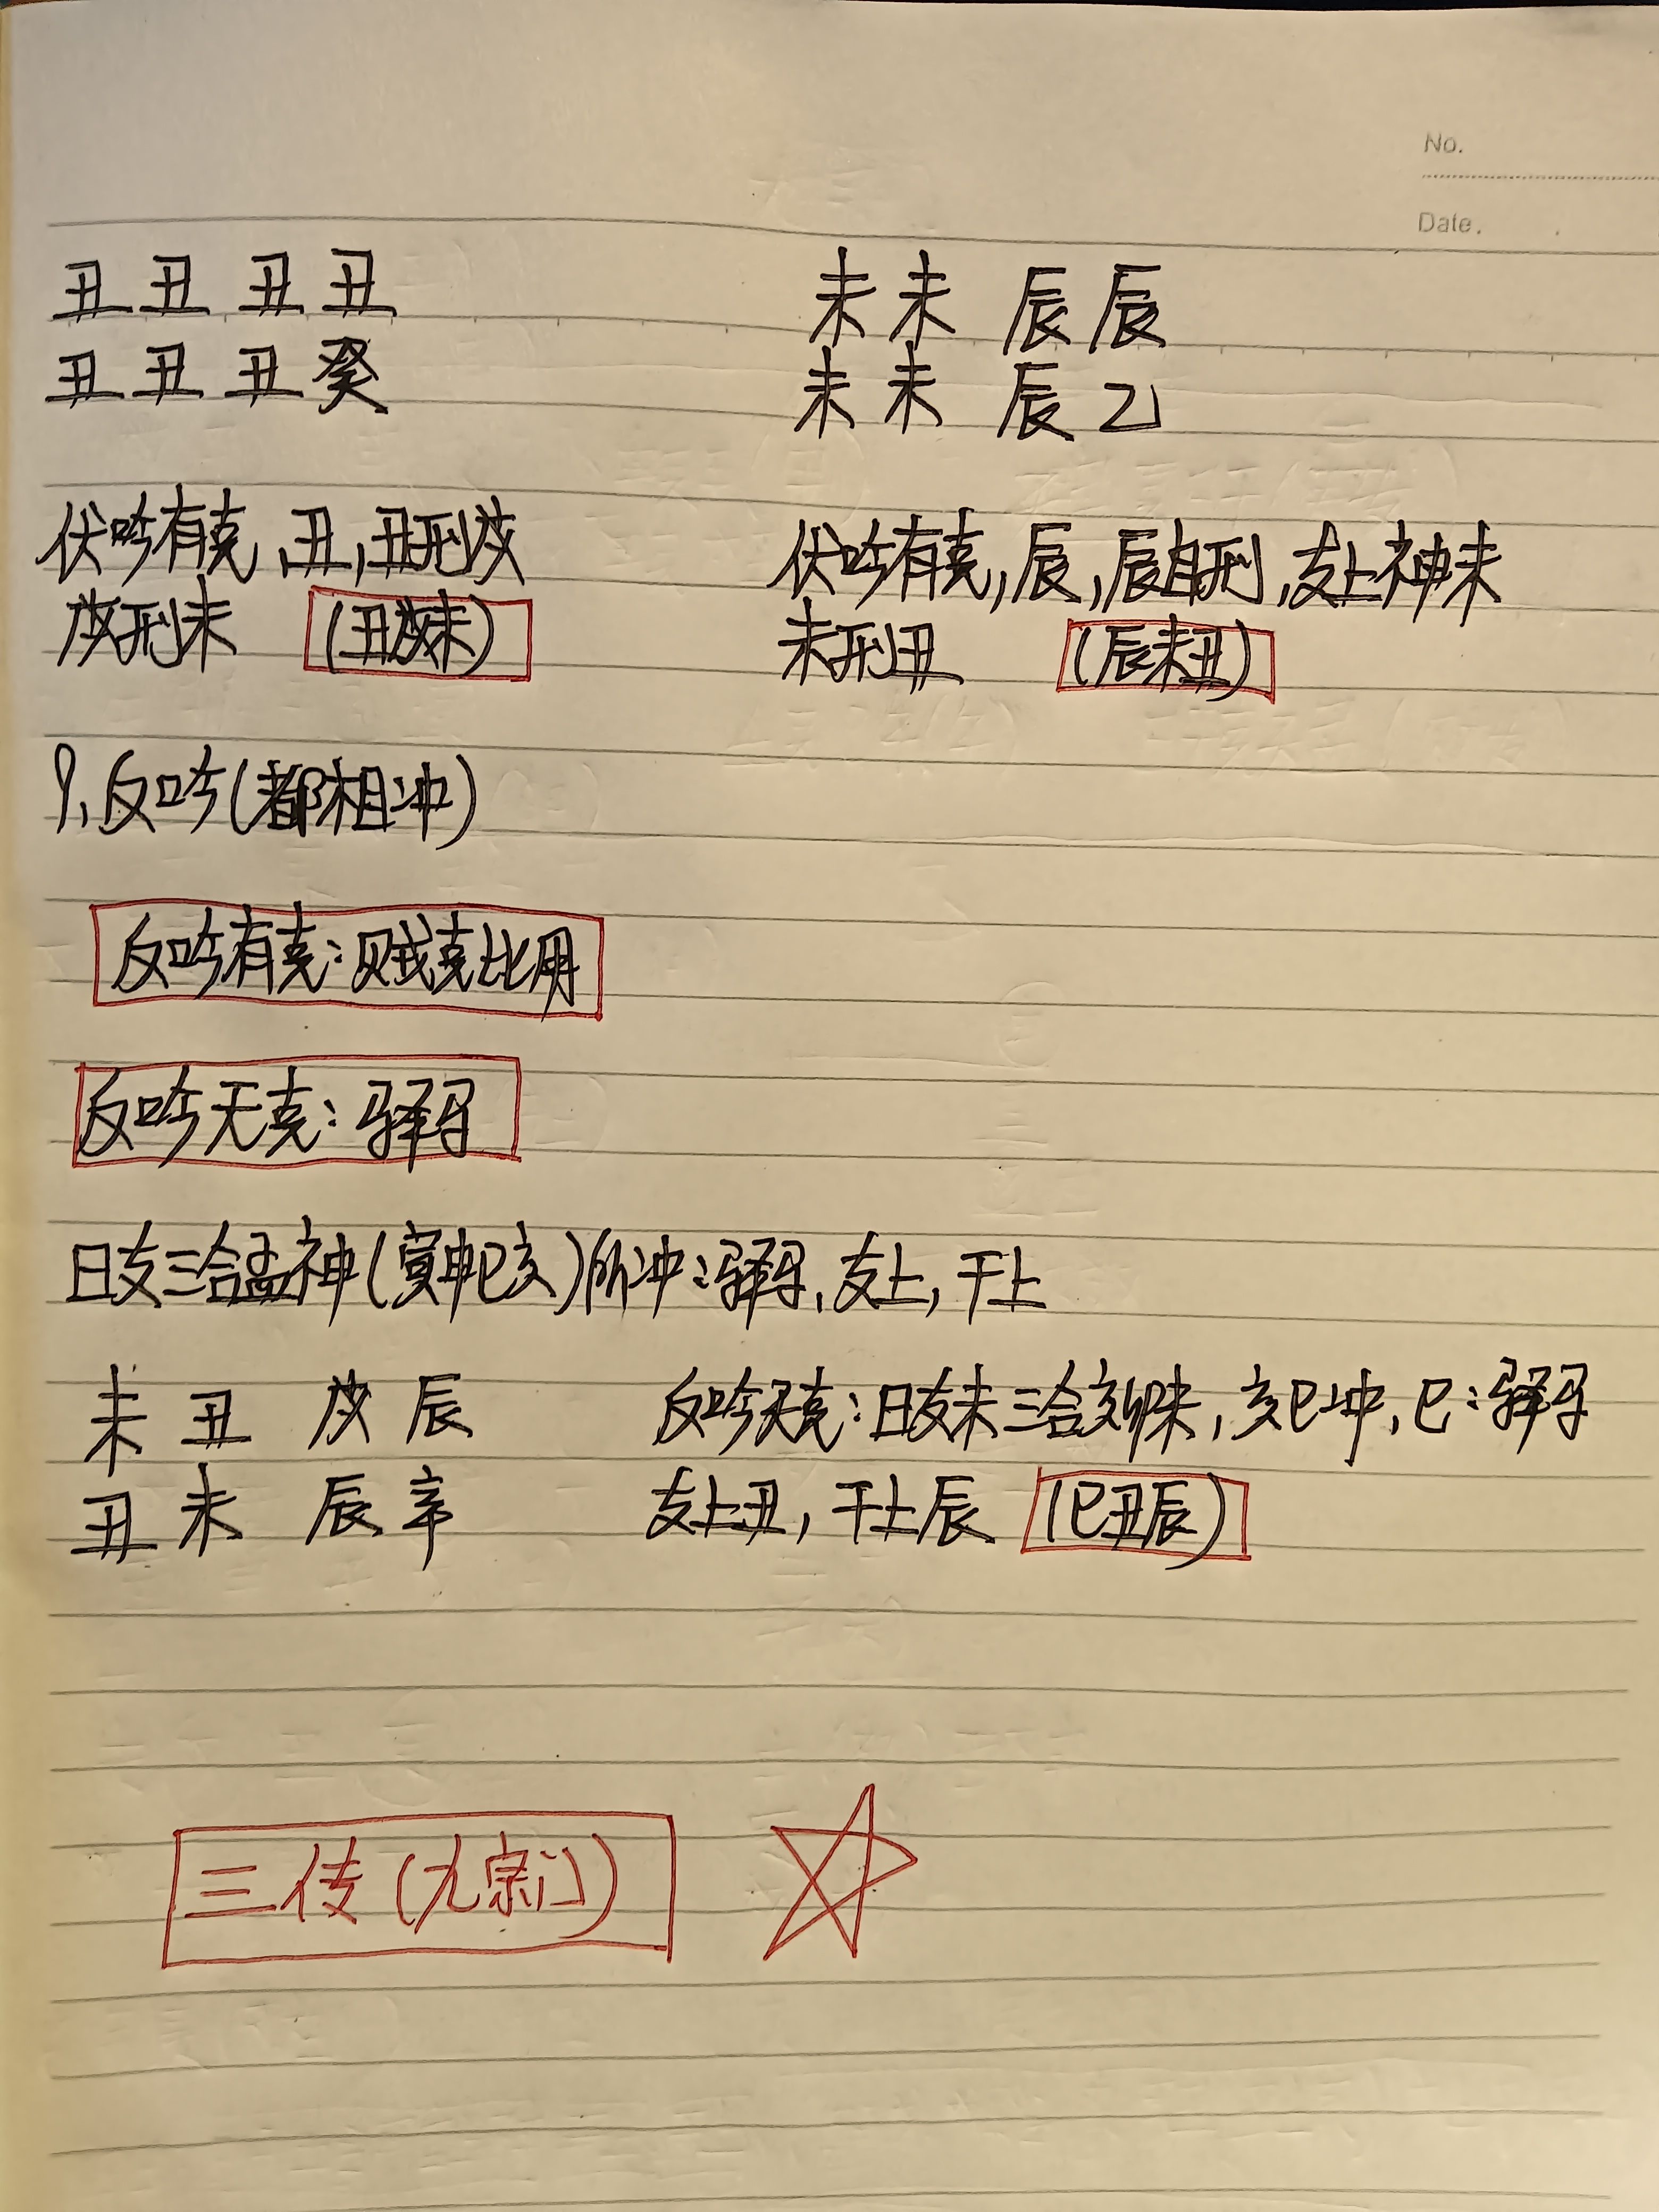 No.
Date.
丑丑 丑丑
丑丑 丑癸
伏吟有克,丑,丑刑戌
戌刑未 (丑戌未)
未未 辰辰
未未 辰乙
伏吟有克,辰,辰自刑,支上神未
未刑丑 (辰未丑)
9、反吟(都相冲)
反吟有克:贼克比用
反吟无克:驿马
日支三合孟神(寅申巳亥)所冲:驿马,支上,干上
未 丑 戌 辰
丑 未 辰 辛
反吟无克:日支未三合亥卯未,亥巳冲,巳:驿马
支上丑,干上辰 (巳丑辰)
三传(九宗门)